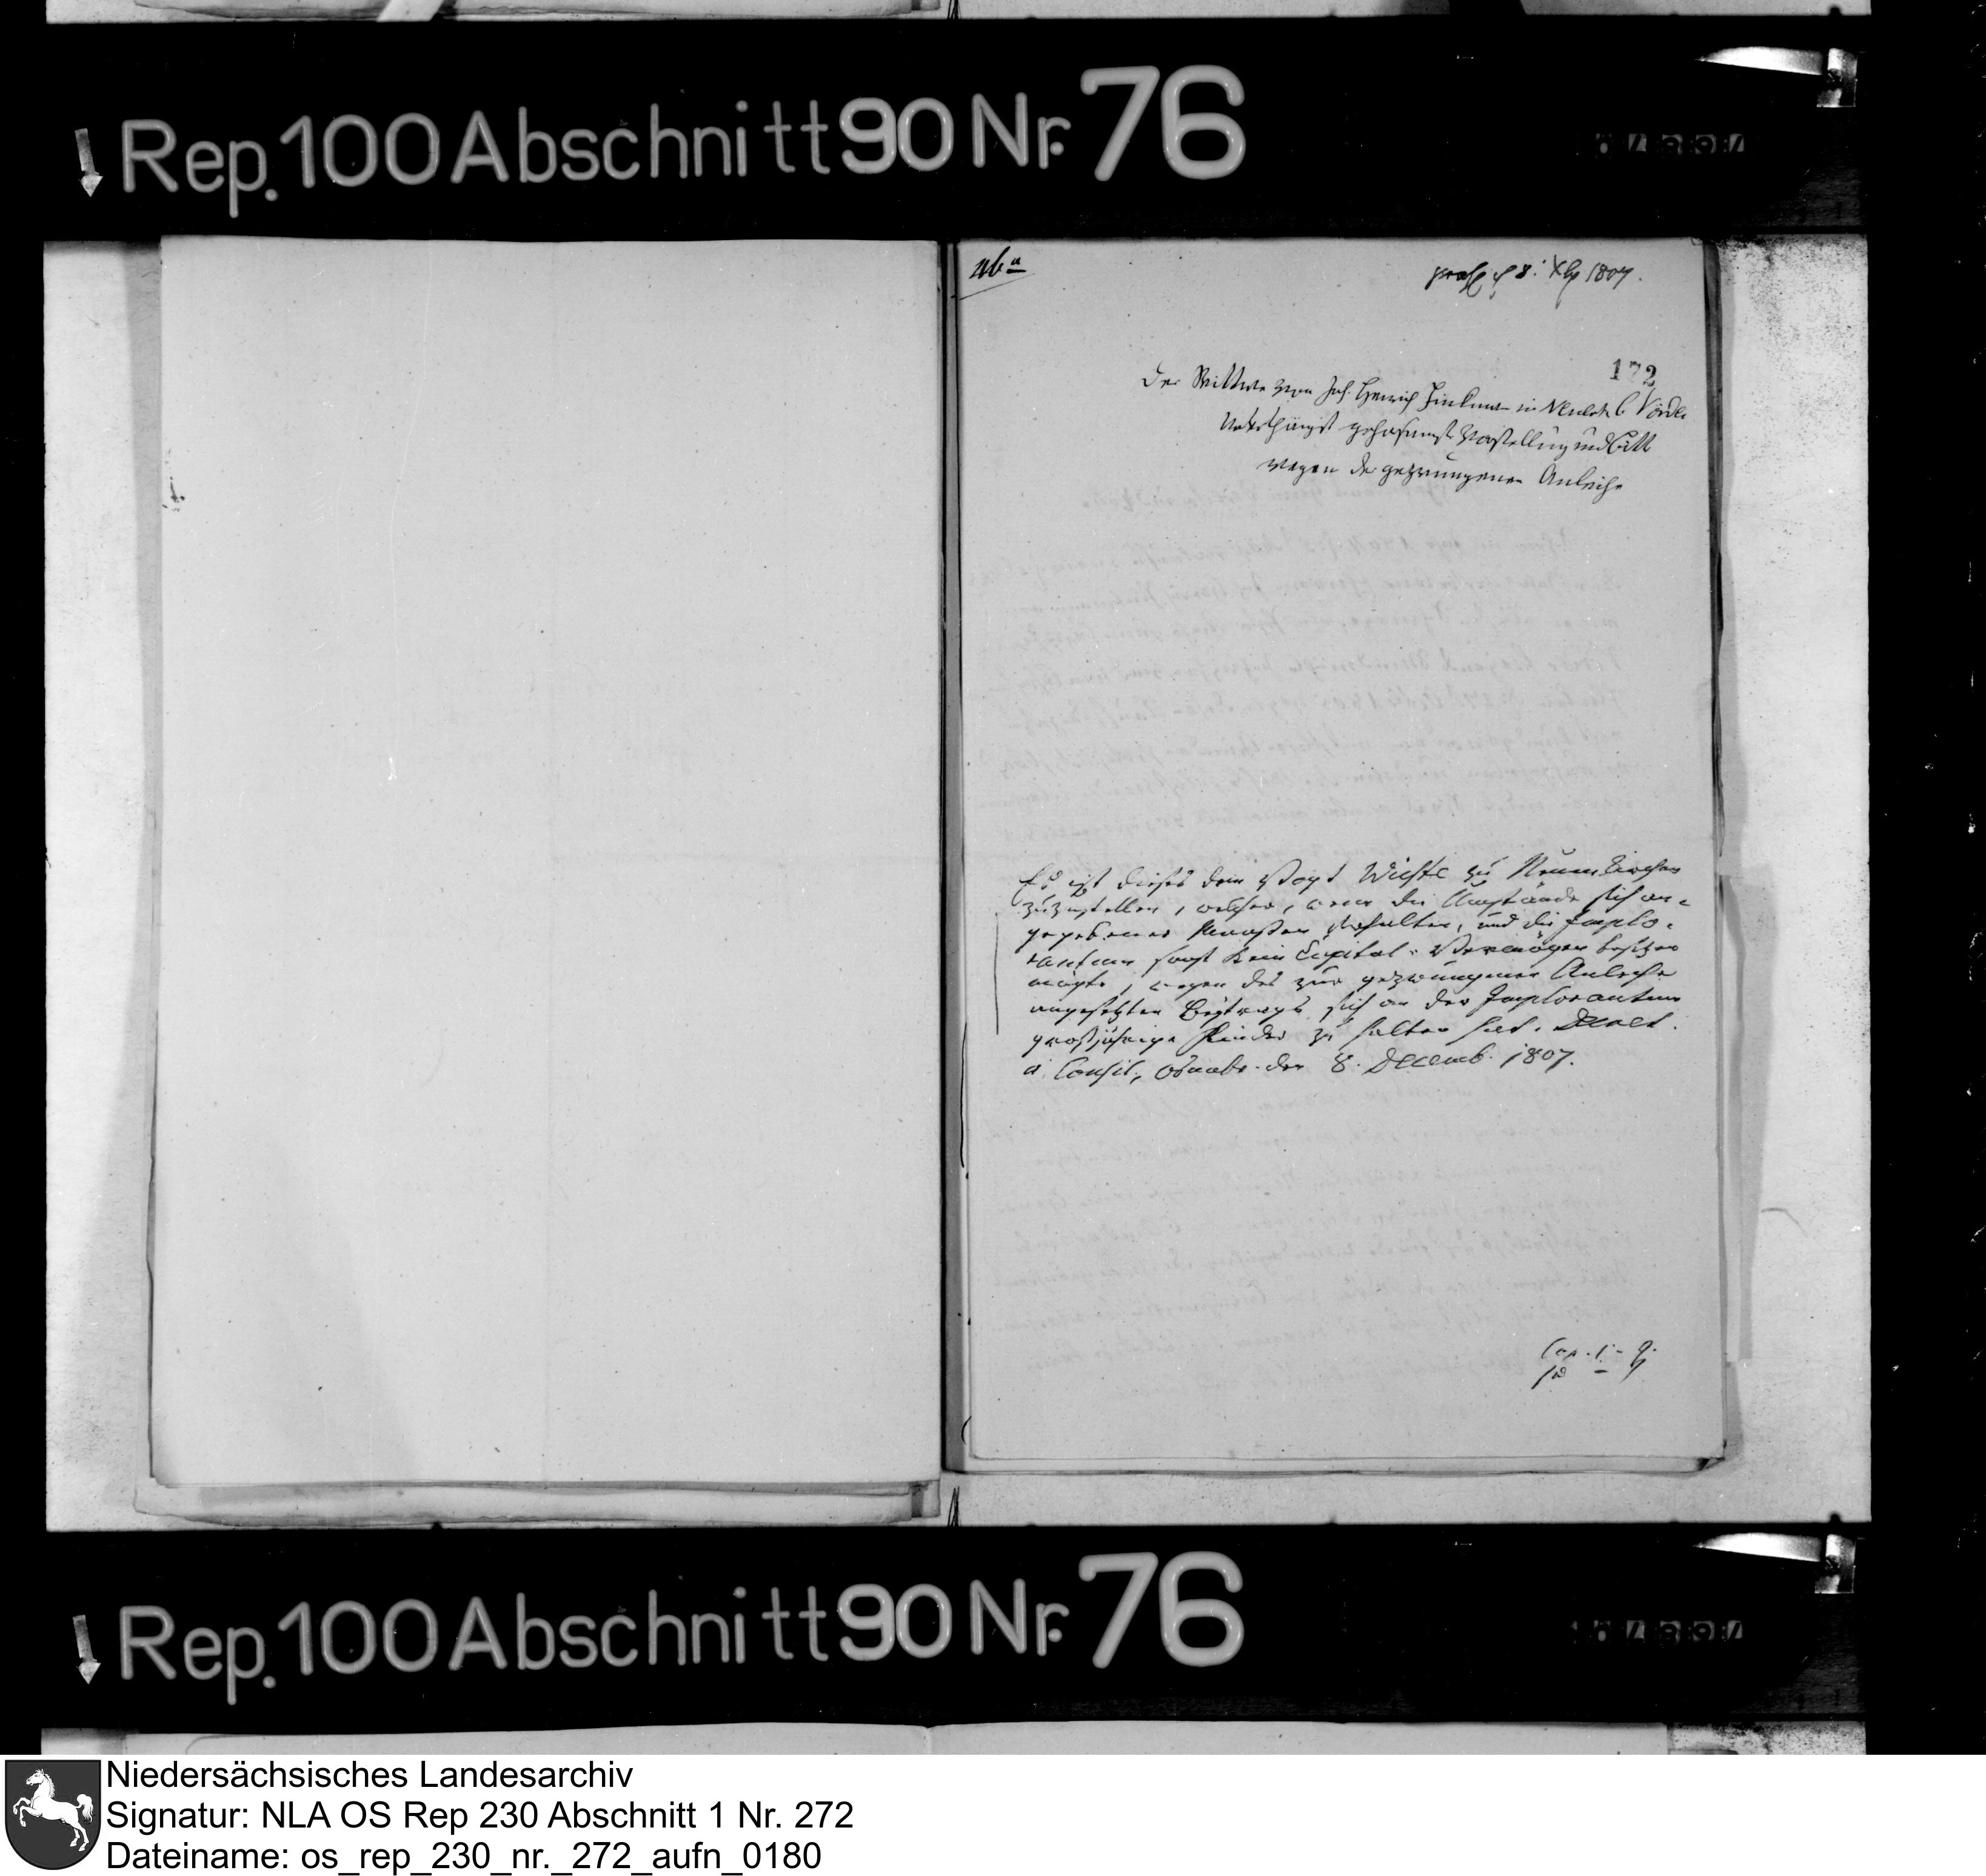 Rep. 100 Abschnitt 90 Nr. 76
praes. d 8. Xbr 1807.
172
Der Wittwe von Joh. Henrich Finkmann in
Unterthänigst gehorsamste Vorstellung und Bitte
wegen der gezwungenen Anleihe
Es ist dieses dem Vogt Wüste zu Neuenkirchen
zuzustellen, welcher, wenn die Umstände sich an-
gegebener Maaßen verhalten, und die Implo-
rantinn sonst kein Capital-Vermögen besitzen
mögte, wegen des zur gezwungenen Anleihe
angesetzten Beytrags sich an der Implorantinn
großjährige Kinder zu halten hat. Decret.
i. Consil. Osnabr. den 8. Decemb. 1807.
Rep. 100 Abschnitt 90 Nr. 76
Niedersächsisches Landesarchiv
Signatur: NLA OS Rep 230 Abschnitt 1 Nr. 272
Dateiname: os_rep_230_nr._272_aufn_0180